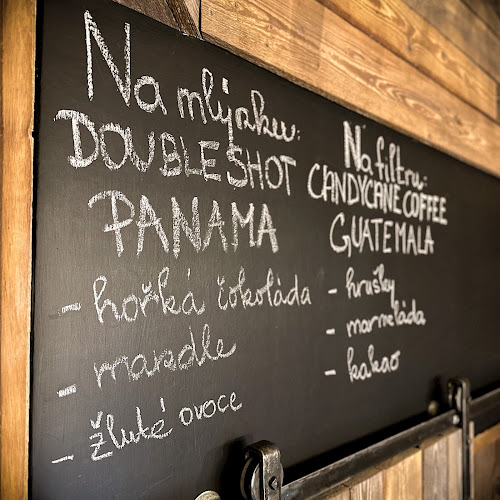 Na mlýnku:
DOUBLESHOT
PANAMA
- hořká čokoláda
- mandle
- žluté ovoce
Na filtru:
CANDYCANE COFFEE
GUATEMALA
- hrušky
- marmeláda
- kakao